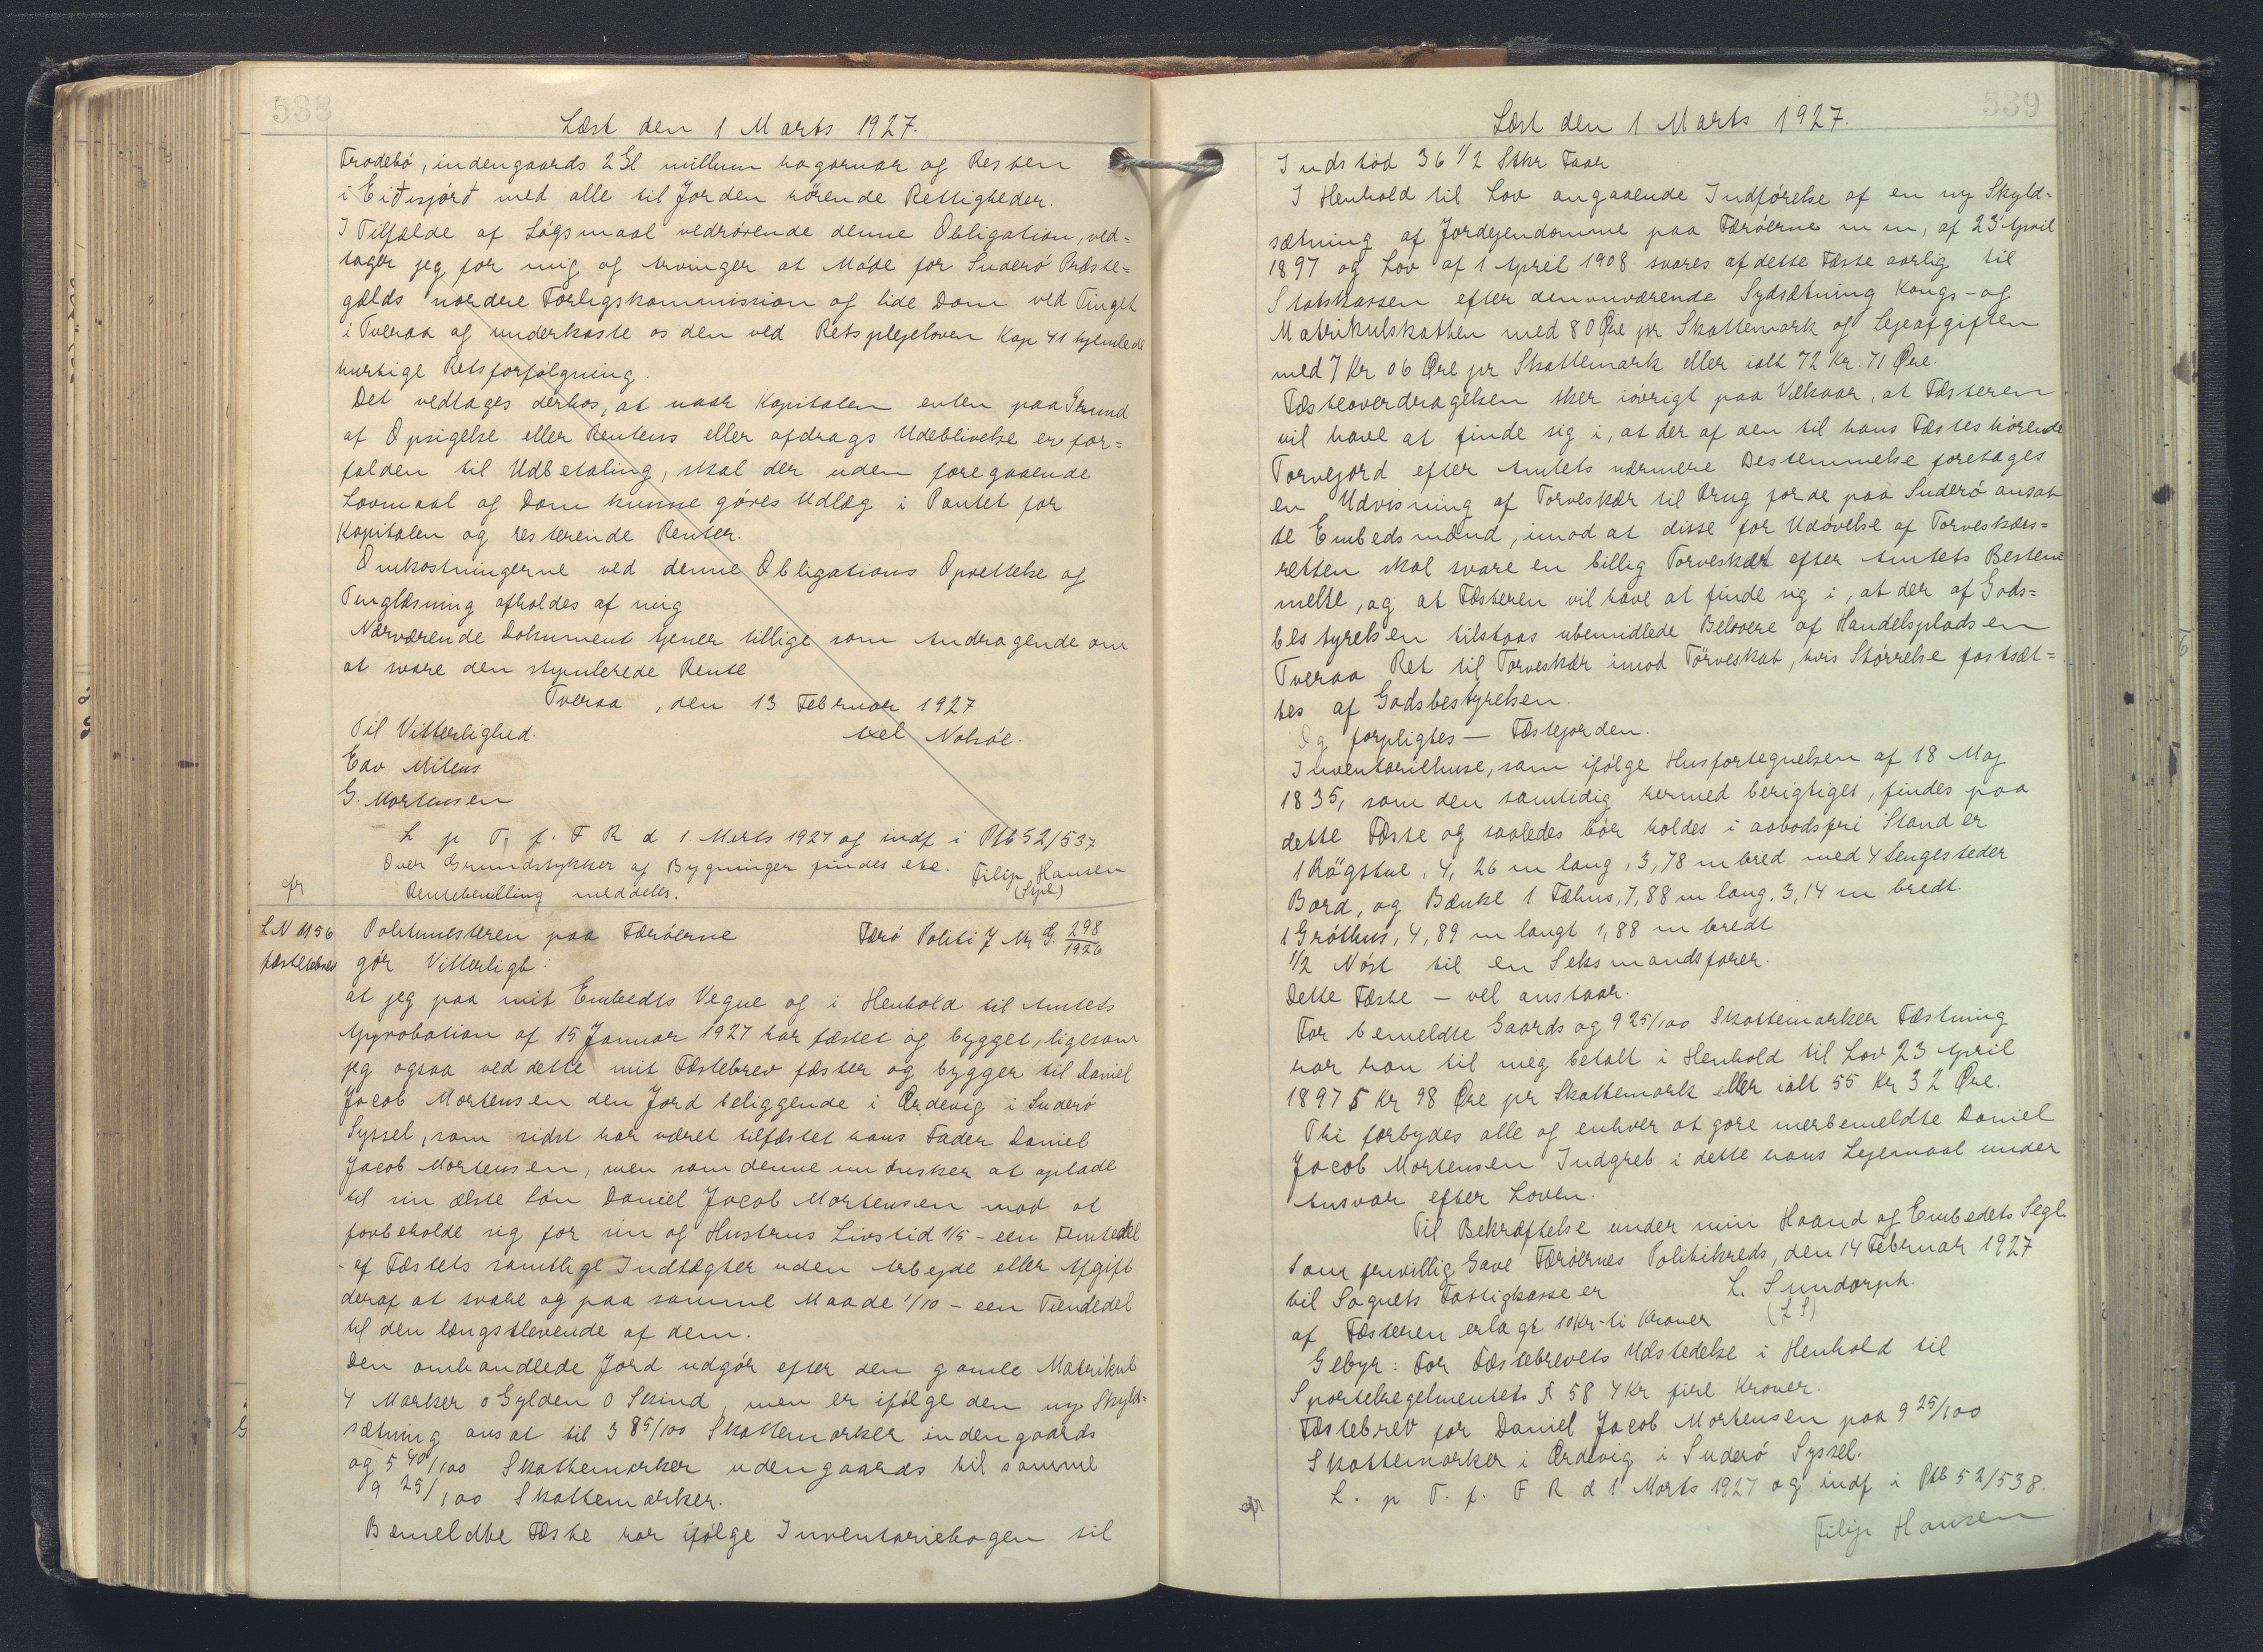 538
Læst den 1 Marts 1927.
Trodebö, indengaards 2 Gl millum hagarnar og Resten
i Eiðisfjørð med alle til Jorden hörende Rettigheder.
I Tilfælde af Søgsmaal vedrørende denne Obligation, ved=
tager jeg for mig og Arvinger at Møde for Suderø Præste=
gælds nordre Forligskommission og lide Dom ved Tinget
i Tveraa og underkaste os den ved Retsplejeloven Kap 41 hjemlede
hurtige Retsforfølgning.
Det vedtages derhos, at naar Kapitalen enten paa Grund
af Opsigelse eller Rentens eller afdrags Udeblivelse er for=
falden til Udbetaling, skal der uden foregaaende
Lovmaal og Dom kunne gøres Udlæg i Pantet for
Kapitalen og resterende Renter.
Omkostningerne ved denne Obligations Oprettelse og
Tinglæsning afholdes af mig
Nærværende Dokument tjener tillige som Andragende om
at svare den stipulerede Rente
Tveraa, den 13 Februar 1927
Til Vitterlighed. Axel Nolsøe.
Edv Mitens
G. Mortensen
L p T. f. F R d 1 Marts 1927 og indf i Ptb 52/537
Over Grundstykker og Bygninger findes etc. Filip Hansen
cfr Rentebevilling meddeles. (Spl)
LN 1156 Politimesteren paa Færøerne Færø Politi J Nr G. 298/1926
fæstebrev gør Vitterligt:
at jeg paa mit Embedts Vegne og i Henhold til Amtets
Approbation af 15 Januar 1927 har fæstet og bygget, ligesom
jeg ogsaa ved dette mit Fæstebrev fæster og bygger til Daniel
Jacob Mortensen den Jord beliggende i Ørdevig i Suderø
Syssel, som sidst har været tilfæstet hans Fader Daniel
Jacob Mortensen, men som denne nu ønsker at oplade
til sin ælste Søn Daniel Jacob Mortensen mod at
forbeholde sig for sin og Hustrus Livstid 1/5 - een Femtedel
- af Fæstets samtlige Indtægter uden Arbejde eller Afgift
deraf at svare og paa samme Maade 1/10 - een Tiendedel
til den længstlevende af dem.
Den omhandlede Jord udgør efter den gamle Matrikul
4 Marker 0 Gylden 0 Skind, men er ifølge den ny Skyld=
sætning ansat til 3 85/100 Skattemarker indengaards
og 5 40/100 Skattemarker udengaards til samme
9 25/100 Skattemarker.
Bemeldte Fæste har ifølge Inventariebogen til
539
Læst den 1 Marts 1927.
Indstød 36 1/2 Stkr Faar
I Henhold til Lov angaaende Indførelse af en ny Skyld=
sætning af Jordejendomme paa Færøerne m m, af 23 April
1897 og Lov af 1 April 1908 svares af dette Fæste aarlig til
Statskassen efter den nuværende Sydsætning Kongs- og
Matrikulskatten med 80 Øre pr Skattemark og Lejeafgiften
med 7 Kr 06 Øre pr Skattemark eller ialt 72 Kr. 71 Øre.
Fæsteoverdragelsen sker iøvrigt paa Vilkaar, at Fæsteren
vil have at finde sig i, at der af den til hans Fæstes hørende
Tørvejord efter Amtets nærmere Bestemmelse foretages
en Udvisning af Tørveskær til Brug for de paa Suderø ansat
te Embedsmænd, imod at disse for Udøvelse af Torveskærs=
retten skal svare en billig Torveskat efter Amtets Bestem
melse, og at Fæsteren vil have at finde sig i, at der af Gods=
bestyrelsen tilstaas ubemidlede Beboere af Handelspladsen
Tveraa Ret til Torveskær imod Törveskat, hvis Størrelse fastsæt=
tes af Godsbestyrelsen.
Og forpligtes — Fæstejorden.
Inventariehuse, som ifølge Husfortegnelsen af 18 Maj
1835, som den samtidig hermed berigtiges, findes paa
dette Fæste og saaledes bør holdes i aabodsfri Stand er
1 Røgstue, 4,26 m lang, 3,78 m bred med 4 Sengesteder
Bord, og Bænke 1 Fæhus, 7,88 m lang. 3,14 m bredt.
1 Gróthus, 4,89 m langt 1,88 m bredt
1/2 Nøst til en Seksmandsfarer.
Dette Fæste — vel anstaar.
For bemeldte Gaards og 9 25/100 Skattemarker Fæstning
har han til meg betalt i Henhold til Lov 23 April
1897 5 Kr 98 Øre pr Skattemark eller ialt 55 Kr 32 Øre.
Thi forbydes alle og enhver at gøre merbemeldte Daniel
Jacob Mortensen Indgreb i dette hans Lejemaal under
Ansvar efter Loven.
Til Bekræftelse under min Haand og Embedets Segl.
Som frivillig Gave Færøernes Politikreds, den 14 Februar 1927
til Sognets Fattigkasse er L. Sundorph.
af Fæsteren erlagt 10 Kr - ti Kroner (L S)
Gebyr: For Fæstebrevets Udstedelse i Henhold til
Sportelreglementets § 58 4 Kr fire Kroner.
Fæstebrev for Daniel Jacob Mortensen paa 9 25/100
Skattemarker i Ørdevig i Suderø Syssel.
cfr L. p T. f. F R d 1 Marts 1927 og indf i Ptb 52/538.
Filip Hansen